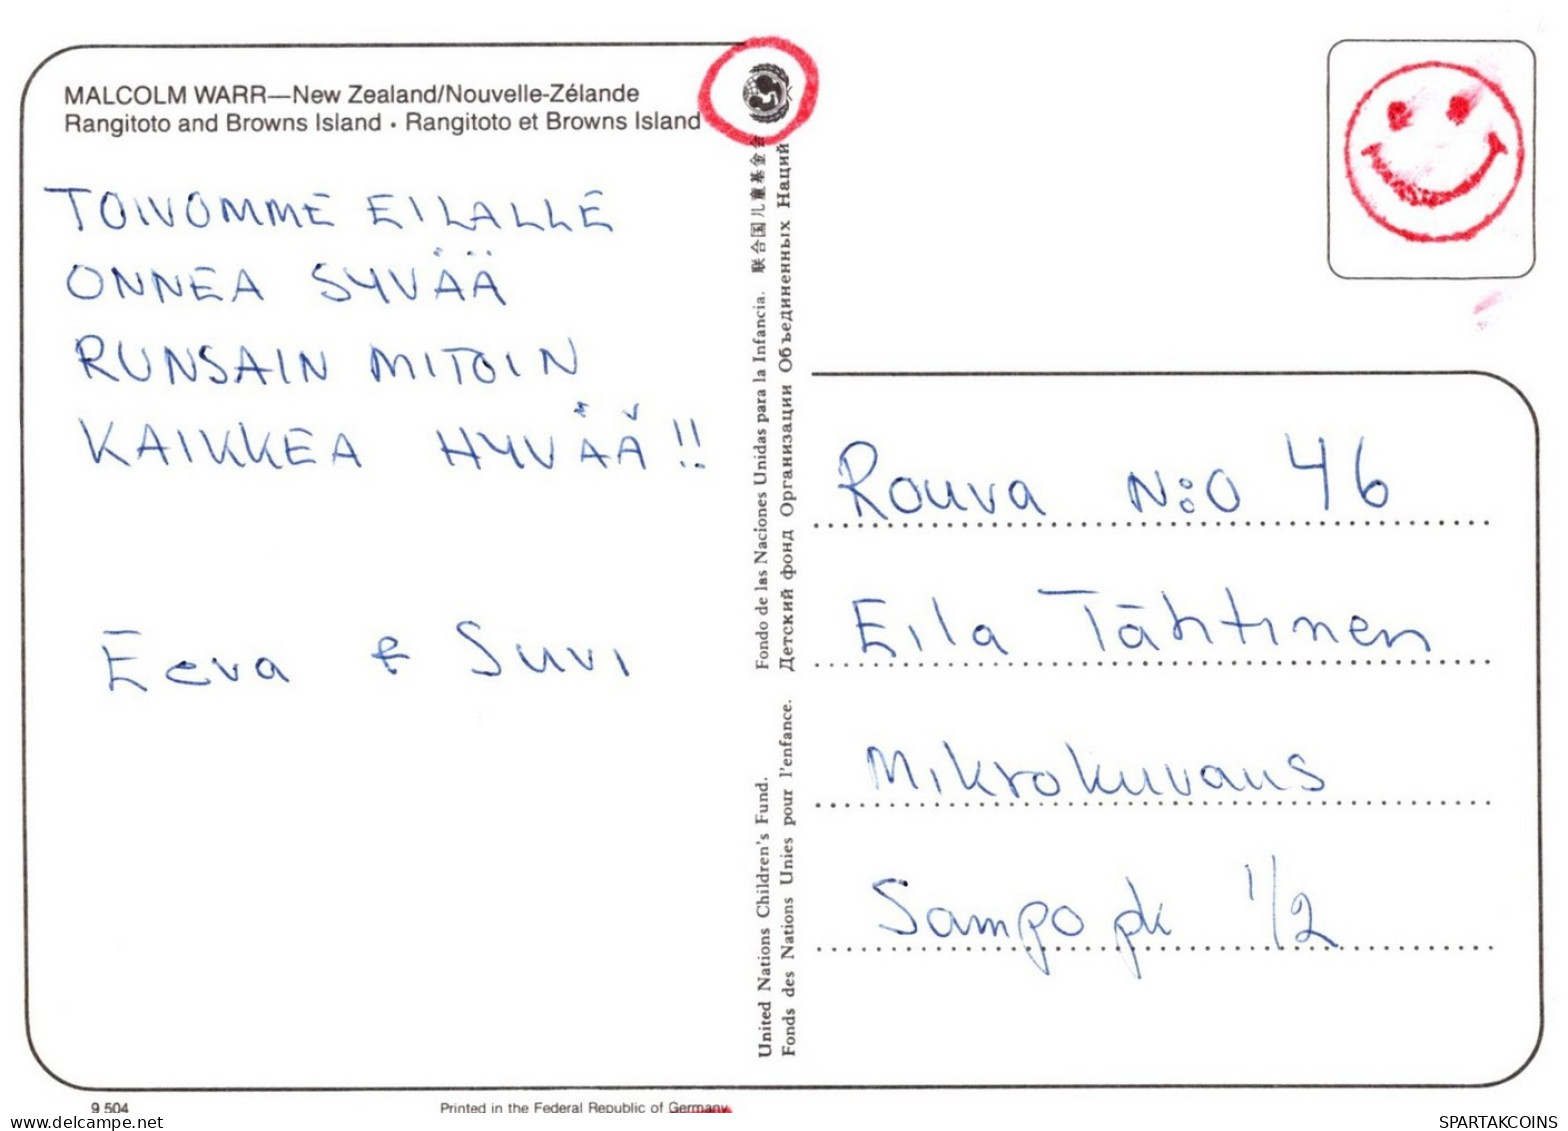 MALCOLM WARR—New Zealand/Nouvelle-Zélande
Rangitoto and Browns Island • Rangitoto et Browns Island
TOIVOMME EILALLE
ONNEA SYVÄÄ
RUNSAIN MITOIN
KAIKKEA HYVÄÄ!!
Eeva & Suvi
United Nations Children's Fund. Fondo de las Naciones Unidas para la Infancia. 联合国儿童基金会
Fonds des Nations Unies pour l'enfance. Детский фонд Организации Объединенных Наций
Rouva N:o 46
Eila Tähtinen
Mikrokuvaus
Sampo pk 1/2
9 504
Printed in the Federal Republic of Germany
SPARTAKCOINS